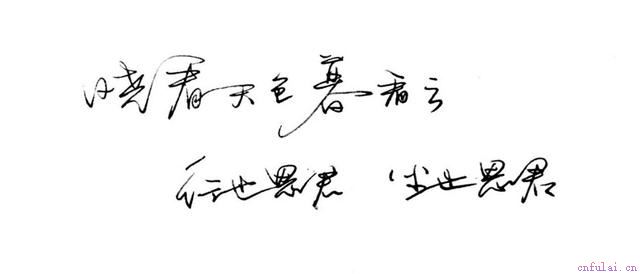 晓看天色暮看云
行也思君 坐也思君
cnfulai.cn